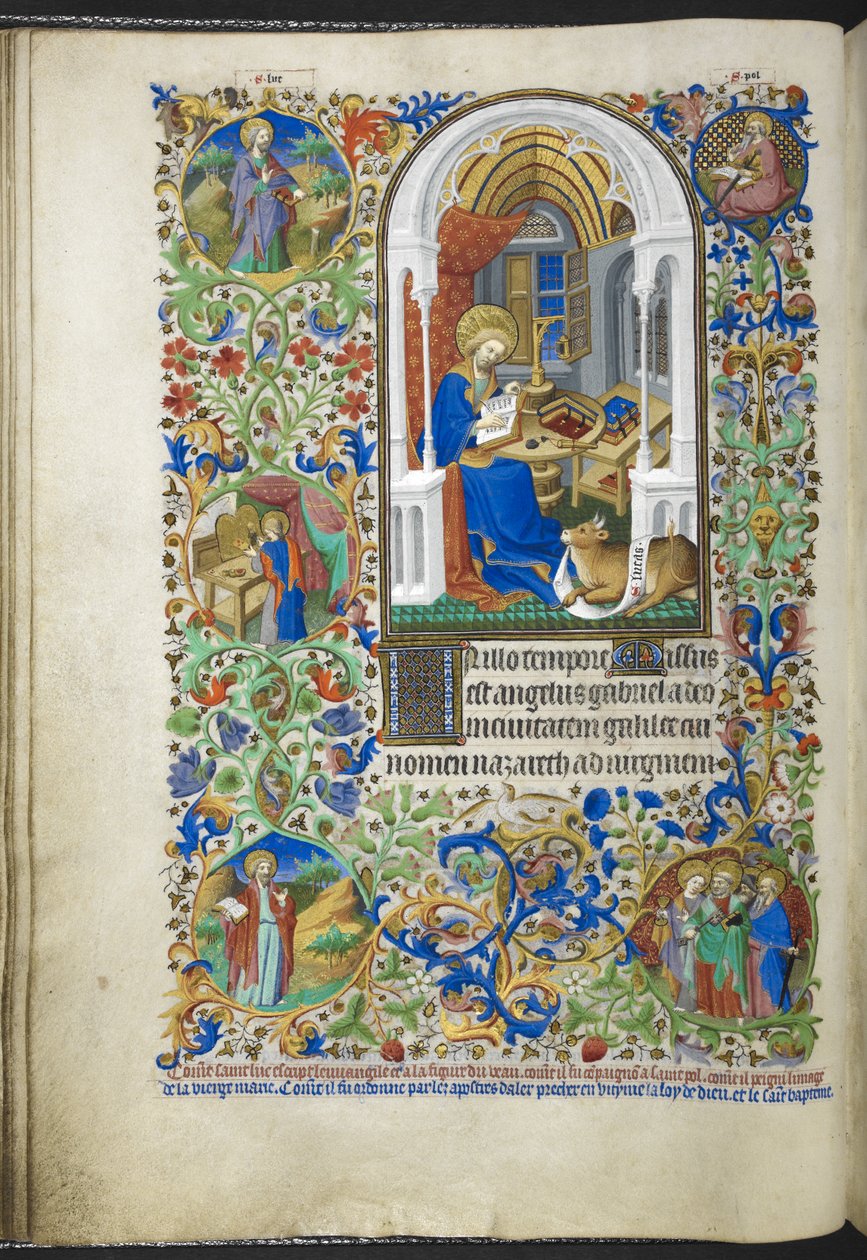 S. luc
S. pol
S. lucas.
IN illo tempore Missus
est angelus gabriel a deo
in civitatem galilee cui
nomen nazareth ad virginem
Come saint luc escript leuuangile et a la figur du veau. come il fu copaignon a saint pol. come il peigni limage
de la vierge marie. Come il fu ordonne par lez apostres daler precher en la loy de dieu. et le saint bapteme.